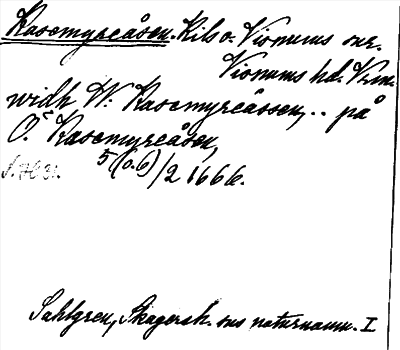 Kasemyreåsen. Kils o. Visnums snr.
Visnums hd. Vrm.
widh W. Kasemyreåssen, .. på
Ö. Kasemyreåsen,
5 (o. 6)/2 1666.
Sahlgren, Skagersh. sns naturnamn. I